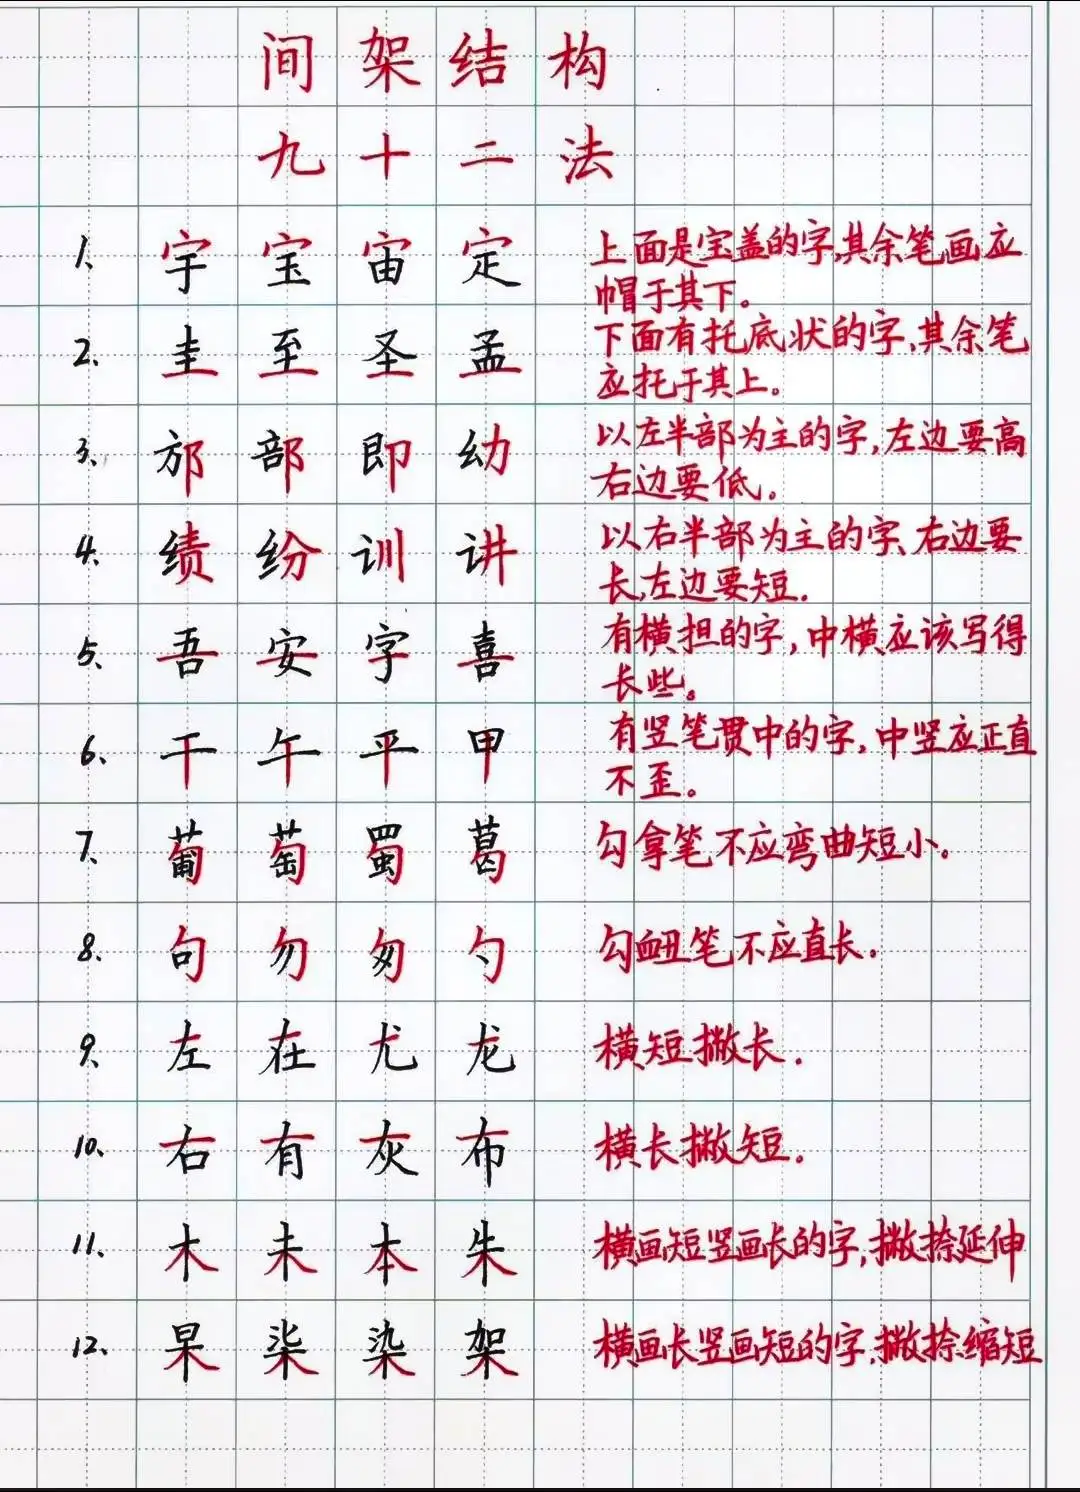 间架结构
九十二法
1、宇宝宙定 上面是宝盖的字,其余笔画应
帽于其下。
2、圭至圣孟 下面有托底状的字,其余笔
应托于其上。
3、邡部即幼 以左半部为主的字,左边要高
右边要低。
4、绩纷训讲 以右半部为主的字、右边要
长,左边要短.
5、吾安字喜 有横担的字,中横应该写得
长些。
6、干午平甲 有竖笔贯中的字,中竖应正直
不歪。
7、葡萄蜀葛 勾拿笔不应弯曲短小.
8、句勿匆勺 勾衄丑笔不应直长.
9、左在尤龙 横短撇长.
10、右有灰布 横长撇短.
11、木未本朱 横画短竖画长的字,撇捺延伸
12、杲柒染架 横画长竖画短的字,撇捺缩短